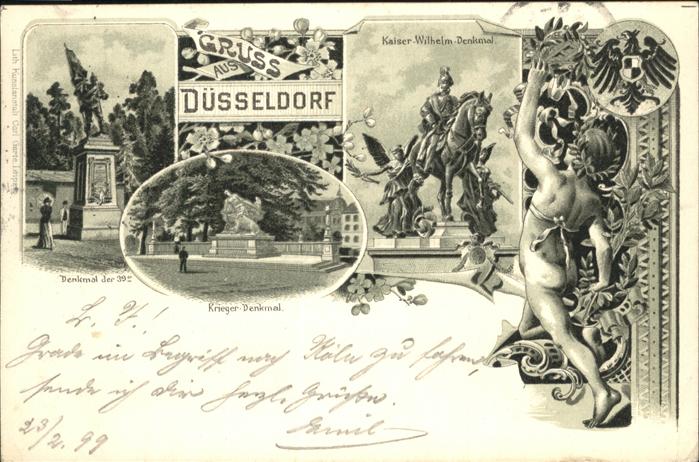 GRUSS
AUS
DÜSSELDORF
Kaiser-Wilhelm-Denkmal.
Denkmal der 39er
Krieger-Denkmal.
Lith. Kunstanstalt Carl Garte, Leipzig
L. F.!
Grade im Begriff nach Köln zu fahren,
sende ich Dir herzl. Grüße.
23/2. 99
Emil